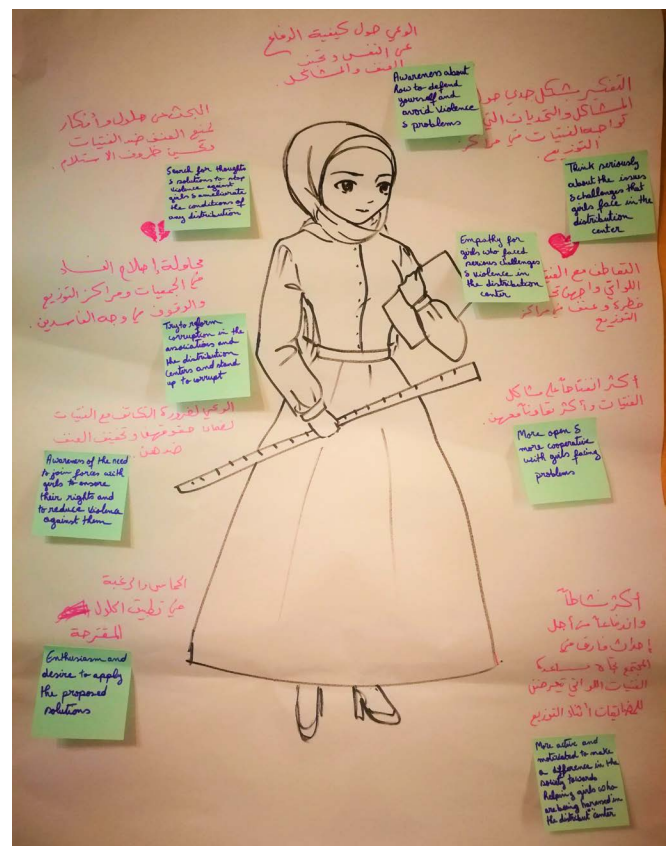 الوعي حول كيفية الدفاع
عن النفس وتجنب
العنف والمشاكل.
Awareness about
how to defend
yourself and
avoid violence
& problems
التفكير بشكل جدي حول
المشاكل والتحديات التي
تواجه الفتيات في مراكز
التوزيع.
Think seriously
about the issues
& challenges that
girls face in the
distribution
center
البحث عن حلول وأفكار
لمنع العنف ضد الفتيات
وتحسين ظروف الاستلام.
Search for thoughts
& solutions to stop
violence against
girls & ameliorate
the conditions of
any distribution
Empathy for
girls who faced
serious challenges
& violence in
the distribution
center
التعاطف مع الفتيات
اللواتي واجهن
خطرة وعنف في مراكز
التوزيع
محاولة إصلاح الفساد
في الجمعيات ومراكز التوزيع
والوقوف في وجه الفاسدين.
Try to reform
corruption in the
associations and
the distribution
centers and stand
up to corrupt
أكثر انفتاحاً على مشاكل
الفتيات وأكثر تعاوناً معهن.
More open &
more cooperative
with girls facing
problems
الوعي لضرورة التكاتف مع الفتيات
لضمان حقوقهن وتخفيف العنف
ضدهن.
Awareness of the need
to join forces with
girls to ensore
their rights and
to reduce violence
against them
الحماس والرغبة
في تطبيق الحلول
المقترحة
Enthusiasm and
desire to apply
the proposed
solutions
أكثر نشاطاً
واندفاعاً من أجل
إحداث فارق في
المجتمع تجاه مساعدة
الفتيات اللواتي تعرضن
للمضايقات أثناء التوزيع
More active and
motivated to make
a difference in the
society towards
helping girls who
are being harassed in
the distribut° center